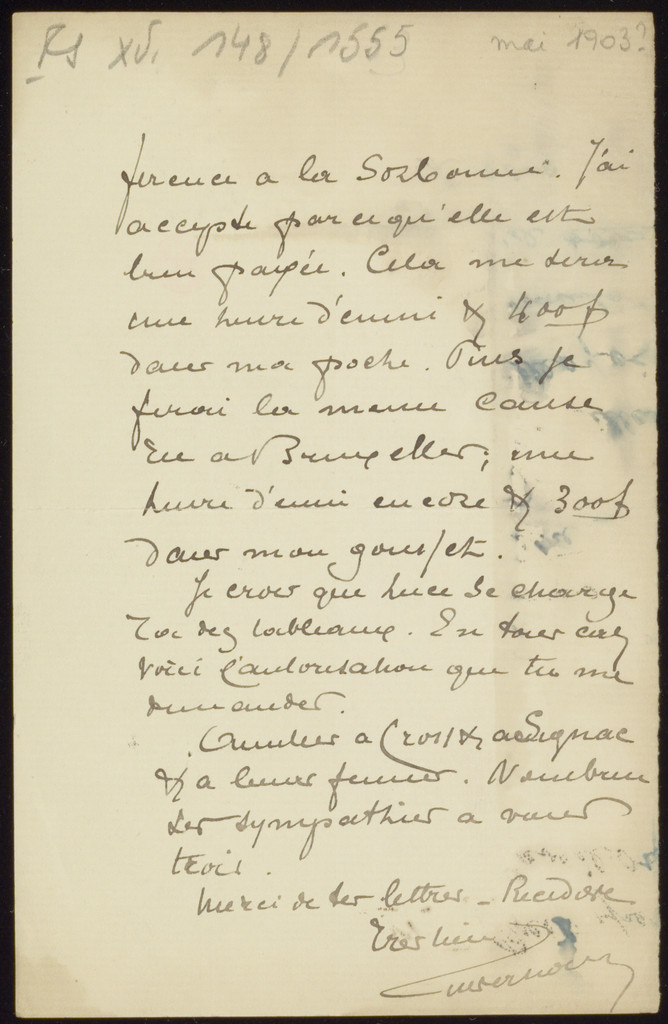 FS XV. 148/1555 mai 1903?
ference a la Sorbonne. J'ai
accepté parce qu'elle est
bien payée. Cela me sera
une heure d'ennui & 400f
dans ma poche. Puis je
ferai la meme Cause
rie a Bruxelles; une
heure d'ennui encore & 300f
dans mon gousset.
Je crois que Luce se charge
ra des tableaux. En tous cas
voici l'autorisation que tu me
demandes.
Amitiés a Cross & a Signac
& a leurs femmes. Nombreu
ses sympathies a vous
trois.
Merci de tes lettres _
Verhaeren